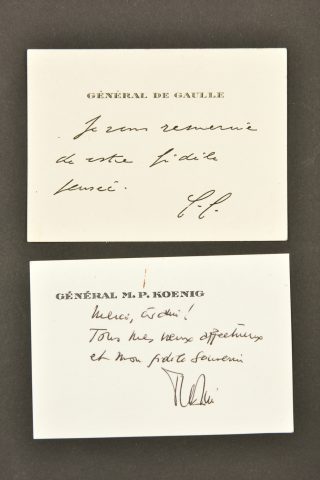 GÉNÉRAL DE GAULLE
Je vous remercie
de votre fidèle
pensée.
GÉNÉRAL M. P. KOENIG
Merci,
Tous mes vœux affectueux
et mon fidèle souvenir